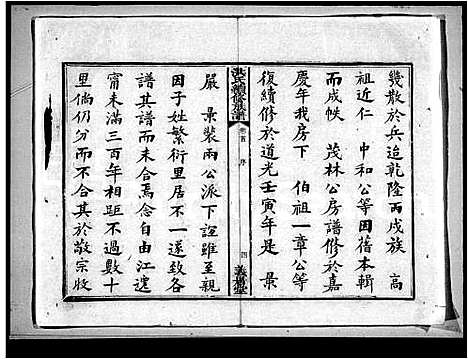 幾散於兵迨乾隆丙戌族　高
祖近仁　中和公等因舊本輯
而成帙　茂林公房譜修於嘉
慶年我房下　伯祖一章公等
復續修於道光壬寅年是　景
洪氏續修族譜
卷首　序
四
嚴　景裝兩公派下誼雖至親
因子姓繁衍里居不一遂致各
譜其譜而未合焉念自由江遷
甯未滿三百年相距不過數十
里倘仍分而不合其於敬宗收